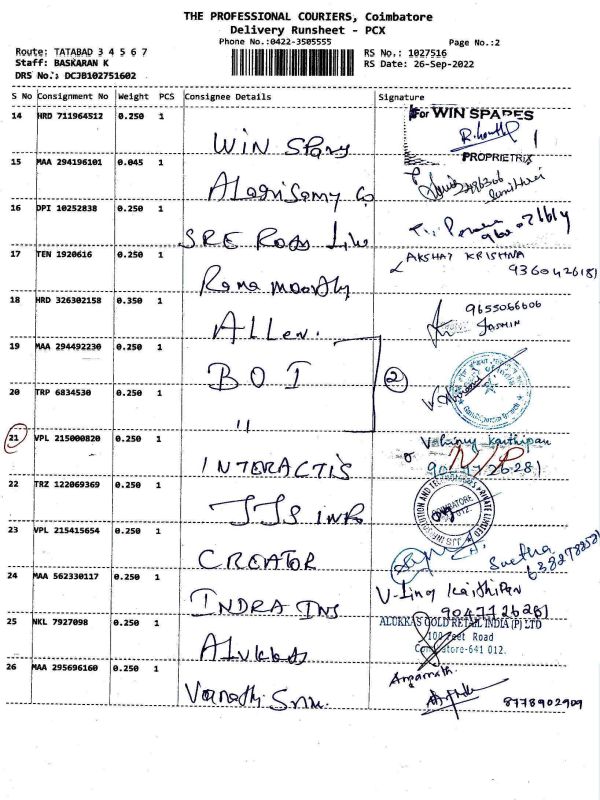 THE PROFESSIONAL COURIERS, Coimbatore
Delivery Runsheet - PCX
Phone No.:0422-3505555
Page No.:2
Route: TATABAD 3 4 5 6 7
RS No.: 1027516
Staff: BASKARAN K
RS Date: 26-Sep-2022
DRS No.: DCJB102751602
S No Consignment No Weight PCS Consignee Details Signature
14 HRD 711964512 0.250 1 WIN Spares For WIN SPARES
PROPRIETRIX
15 MAA 294196101 0.045 1
16 DPI 10252838 0.250 1
17 TEN 1920616 0.250 1 Rama moorthy AKSHAY KRISHNA
9360426181
18 HRD 326302158 0.350 1 Allen. 9655066606
JASMIN
19 MAA 294492230 0.250 1 BOI 2
20 TRP 6834530 0.250 1 "
21 VPL 215000820 0.250 1 INTERACTIS N/P
22 TRZ 122069369 0.250 1 JJS INR
23 VPL 215415654 0.250 1 CREATOR Suetha
24 MAA 562330117 0.250 1 INDRA INS
9047726281
25 NKL 7927098 0.250 1 Alukkas ALUKKAS GOLD RETAIL INDIA (P) LTD
100 Feet Road
Coimbatore-641 012.
26 MAA 295696160 0.250 1
8778902909